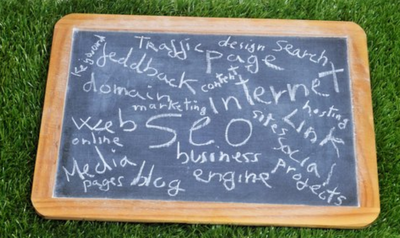 keyword traffic design search
feddback page
domain content Internet
marketing hosting
web Seo sites Link
online business social
Media engine projects
pages blog